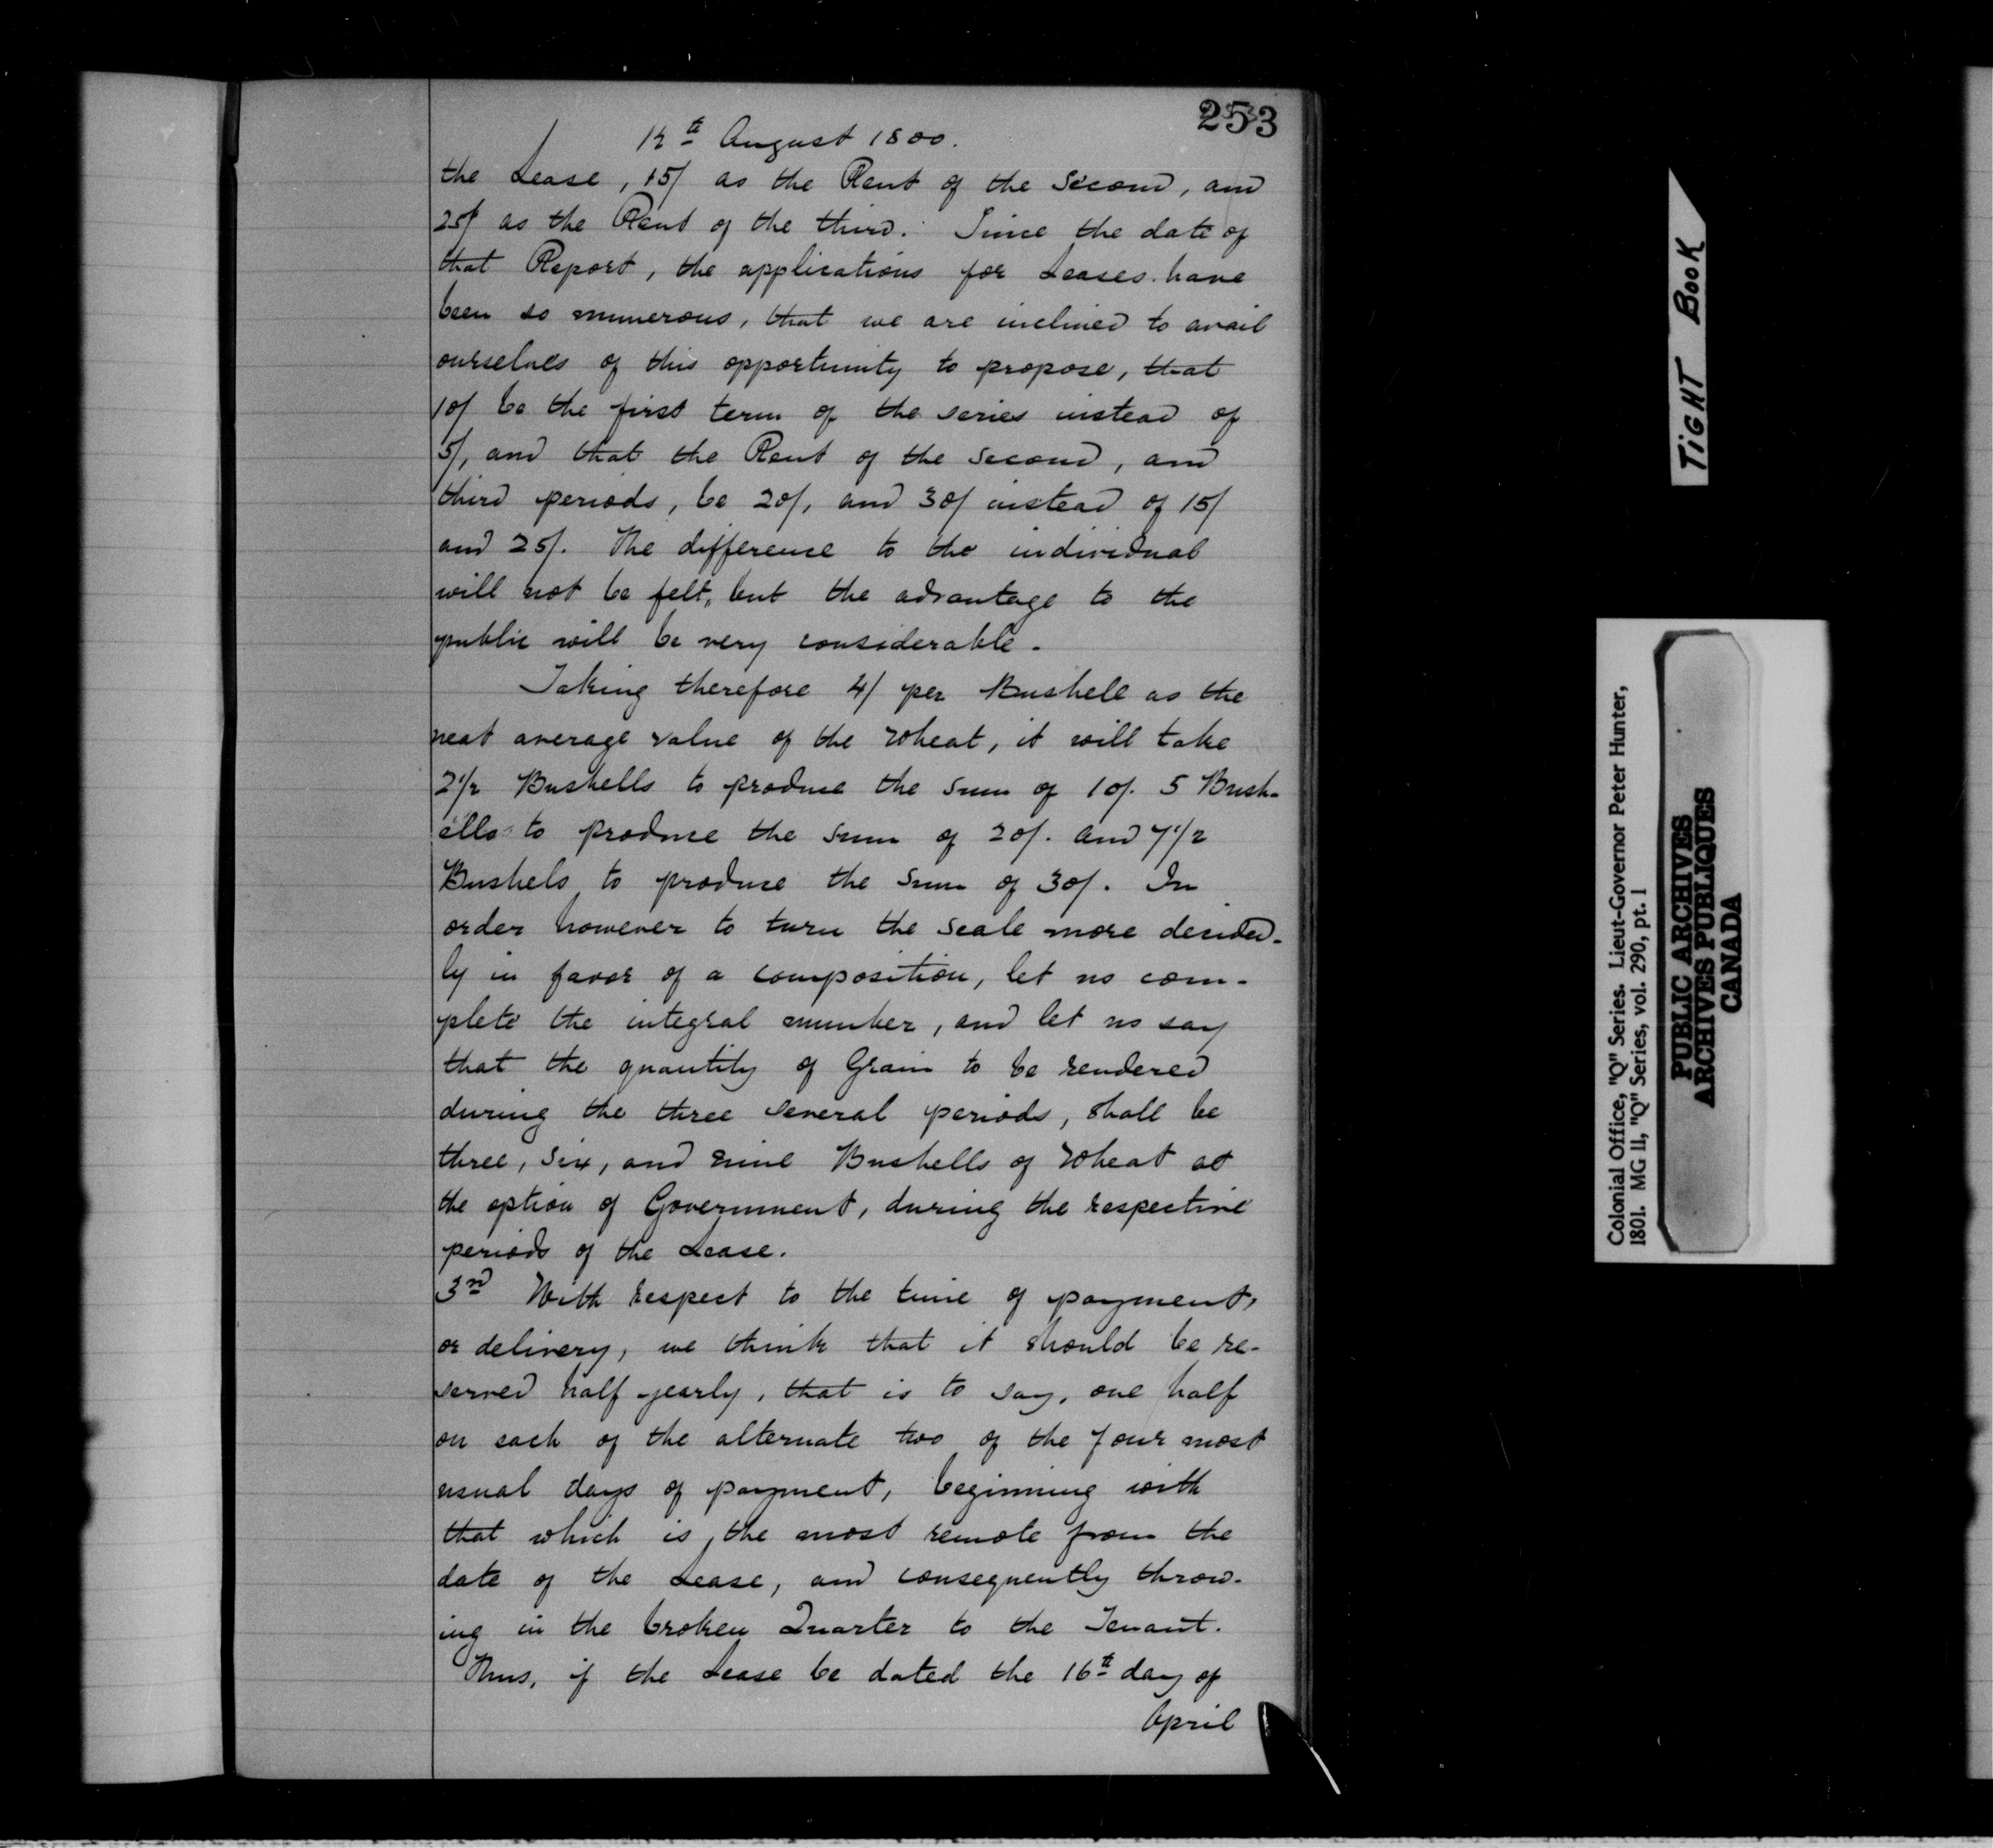 253
12th August 1800.
the Lease, 15/ as the Rent of the Second, and
25/ as the Rent of the third. Since the date of
that Report, the applications for Leases have
been so numerous, that we are inclined to avail
ourselves of this opportunity to propose, that
10/ be the first term of the series instead of
5/, and that the Rent of the Second, and
third periods, be 20/, and 30/ instead of 15/
and 25/. The difference to the individual
will not be felt, but the advantage to the
public will be very considerable.
Taking therefore 4/ per Bushell as the
neat average value of the Wheat, it will take
2 1/2 Bushells to produce the Sum of 10/. 5 Bush-
ells to produce the Sum of 20/. and 7 1/2
Bushels to produce the Sum of 30/. In
order however to turn the Scale more decided-
ly in favor of a composition, let us com-
plete the integral number, and let us say
that the quantity of Grain to be rendered
during the three several periods, shall be
three, six, and nine Bushells of Wheat at
the option of Government, during the respective
periods of the Lease.
3rd With respect to the time of payment,
or delivery, we think that it should be re-
served half yearly, that is to say, one half
on each of the alternate two of the four most
usual days of payment, beginning with
that which is the most remote from the
date of the Lease, and consequently throw-
ing in the broken Quarter to the Tenant.
Thus, if the Lease be dated the 16th day of
April
TIGHT BOOK
Colonial Office, "Q" Series. Lieut-Governor Peter Hunter,
1801. MG 11, "Q" Series, vol. 290, pt. 1
PUBLIC ARCHIVES
ARCHIVES PUBLIQUES
CANADA